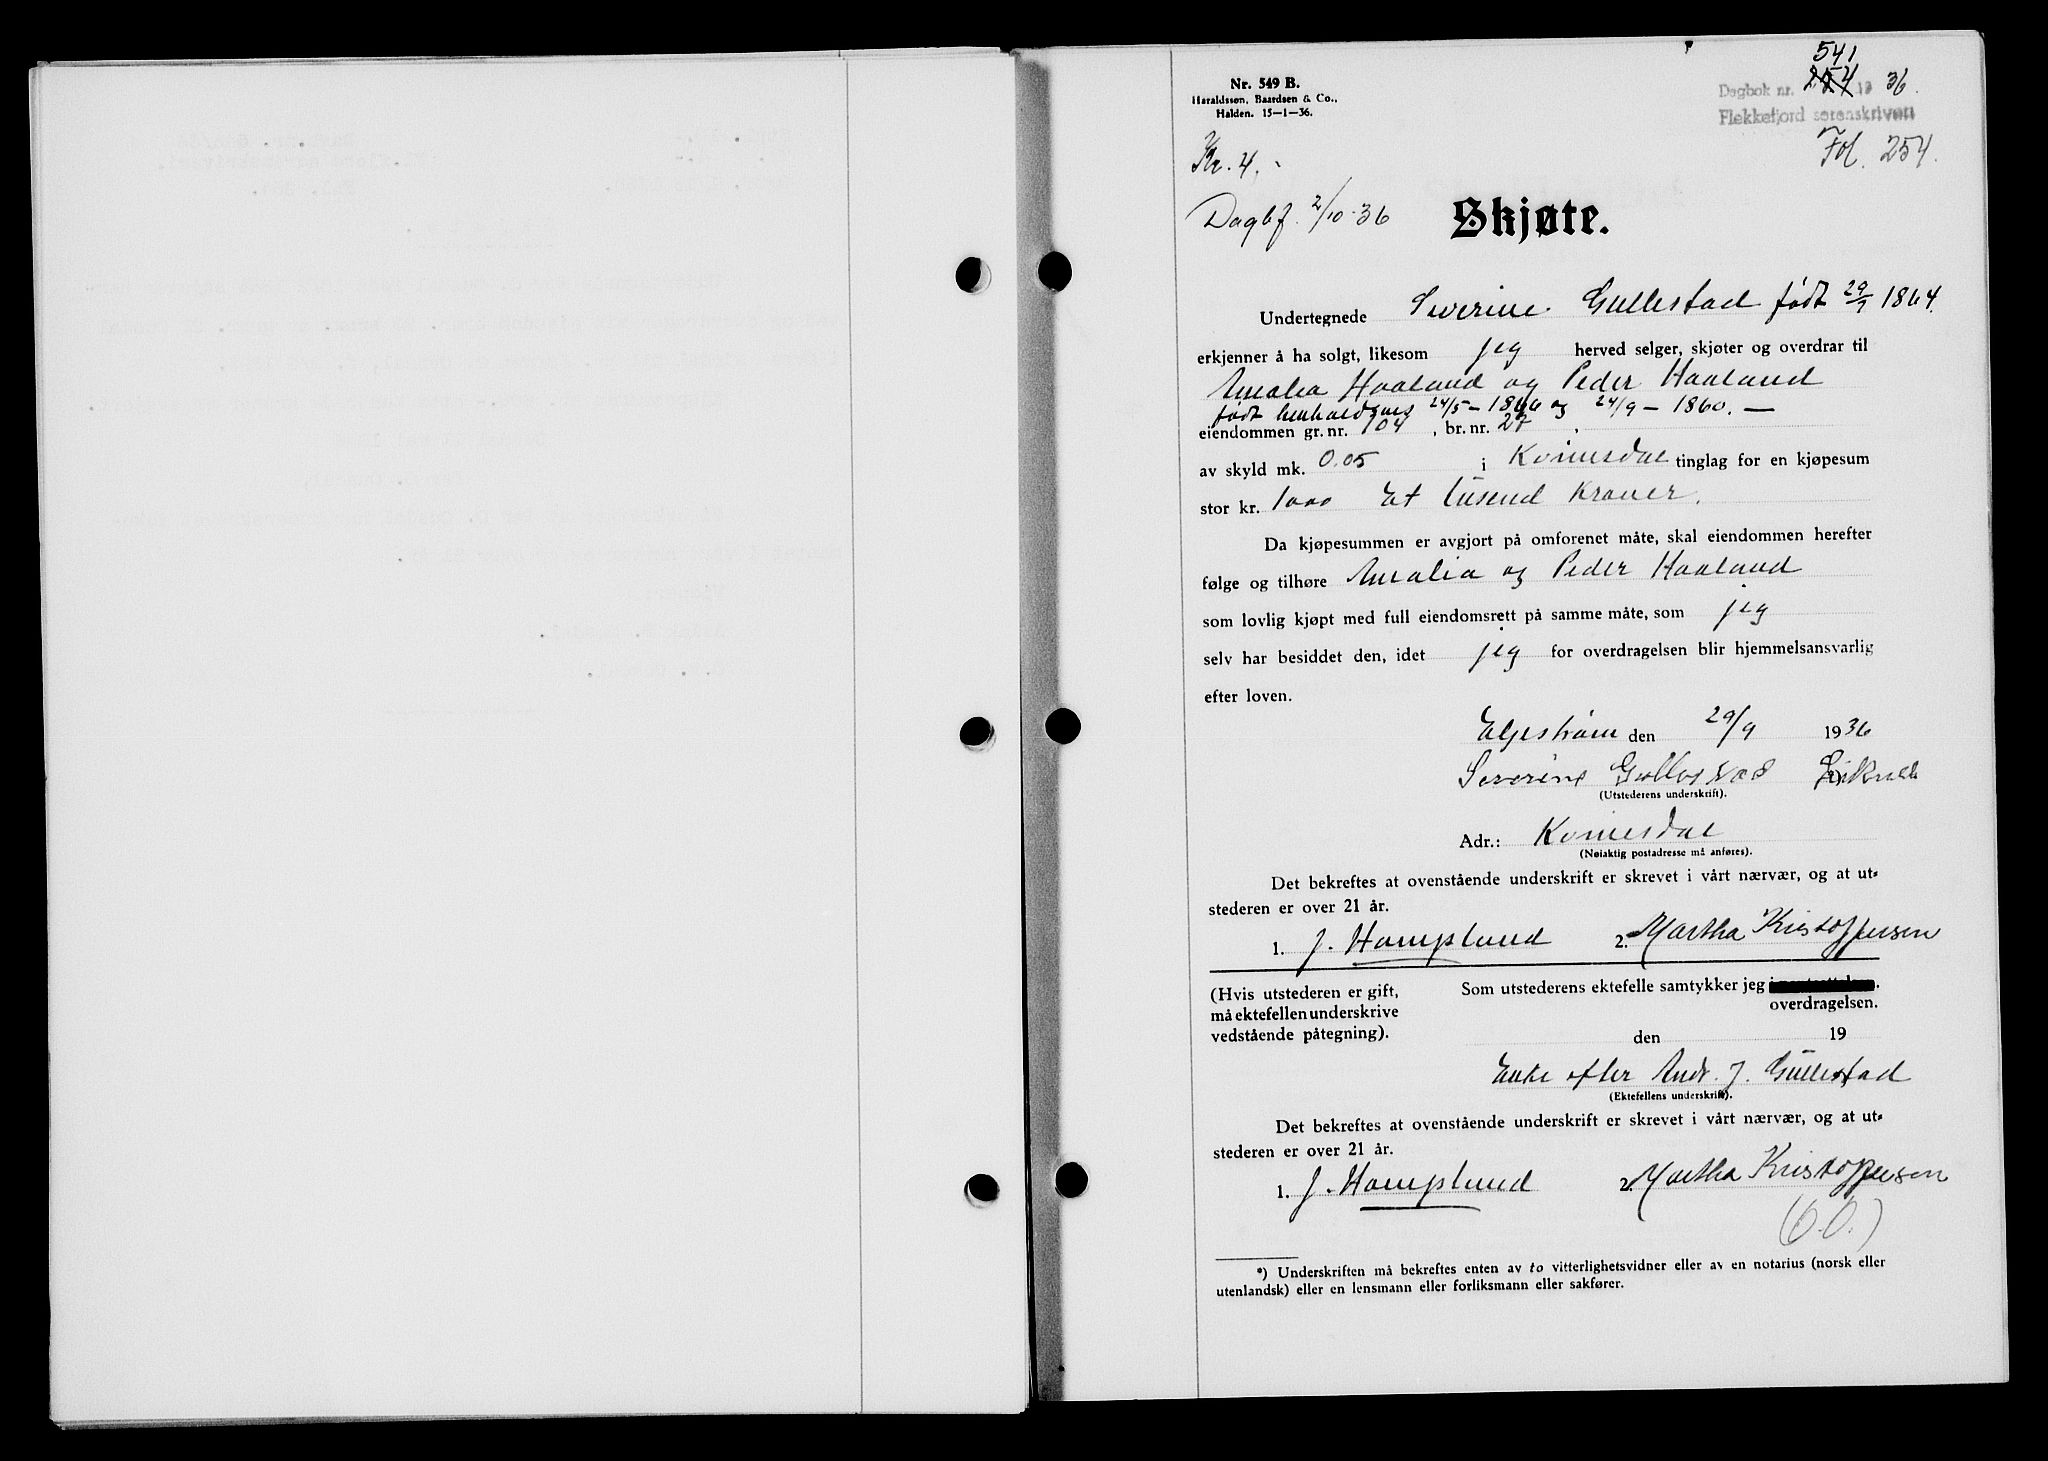 Nr. 549 B.
Haraldssøn, Baardsen & Co.,
Halden. 15—1—36.
541
Dagbok nr. 254 19 36.
Flekkefjord sorenskriveri
Fol. 254.
Kr. 4.-
Dagbf. 2/10-36
Skjøte.
Undertegnede Severine Gullestad født 29/7 1864.
erkjenner å ha solgt, likesom jeg herved selger, skjøter og overdrar til
Amalia Haaland og Peder Haaland
født henholdsvis 24/5 - 1866 og 24/9 - 1860. —
eiendommen gr. nr. 104, br. nr. 27,
av skyld mk. 0.05 i Kvinesdal tinglag for en kjøpesum
stor kr. 1000 Et tusend kroner.
Da kjøpesummen er avgjort på omforenet måte, skal eiendommen herefter
følge og tilhøre Amalia og Peder Haaland
som lovlig kjøpt med full eiendomsrett på samme måte, som jeg
selv har besiddet den, idet jeg for overdragelsen blir hjemmelsansvarlig
efter loven.
den 29/9 1936
Severine Gullestad
(Utstederens underskrift).
Adr.: Kvinesdal
(Nøiaktig postadresse må anføres).
Det bekreftes at ovenstående underskrift er skrevet i vårt nærvær, og at ut-
stederen er over 21 år.
1. J. Hamsland 2. Martha Kristoffersen
(Hvis utstederen er gift,
må ektefellen underskrive
vedstående påtegning).
Som utstederens ektefelle samtykker jeg
overdragelsen.
den 19
Enke efter Andr. J. Gullestad
(Ektefellens underskrift).
Det bekreftes at ovenstående underskrift er skrevet i vårt nærvær, og at ut-
stederen er over 21 år.
1. J. Hamsland 2. Martha Kristoffersen
(O.O.)
*) Underskriften må bekreftes enten av to vitterlighetsvidner eller av en notarius (norsk eller
utenlandsk) eller en lensmann eller forliksmann eller sakfører.